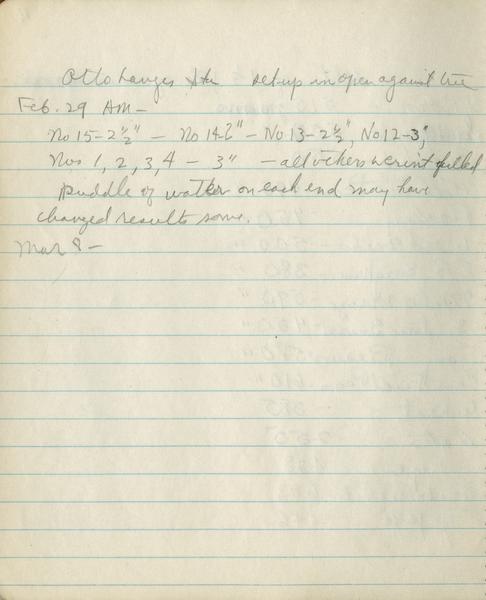 Otto Langes set up in open against tree
Feb. 29 AM -
No 15 - 2 1/2" - No 14 - 2" - No 13 - 2 1/2", No 12 - 3",
Nos 1, 2, 3, 4 - 3" - all others weren't pulled
puddle of water on each end may have
changed results some.
Mar 8 -